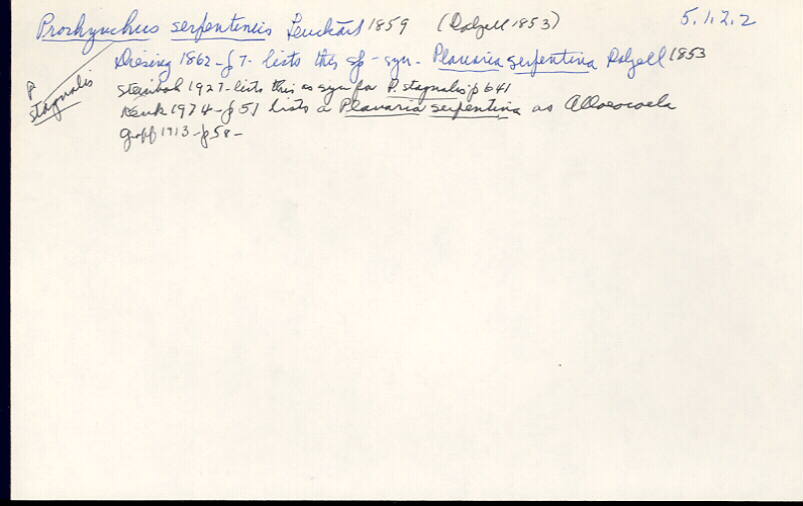 Prorhynchus serpentinus Leuckart 1859 (Dalzell 1853) 5.1.2.2
Diesing 1862 - p 7 - lists this sp - syn - Planaria serpentina Dalzell 1853
P. stagnalis
Steinbok 1927 - lists this as syn for P. stagnalis p 641
Kenk 1974 - p 51 lists a Planaria serpentina as Alloeocoela
Graff 1913 - p 58 -